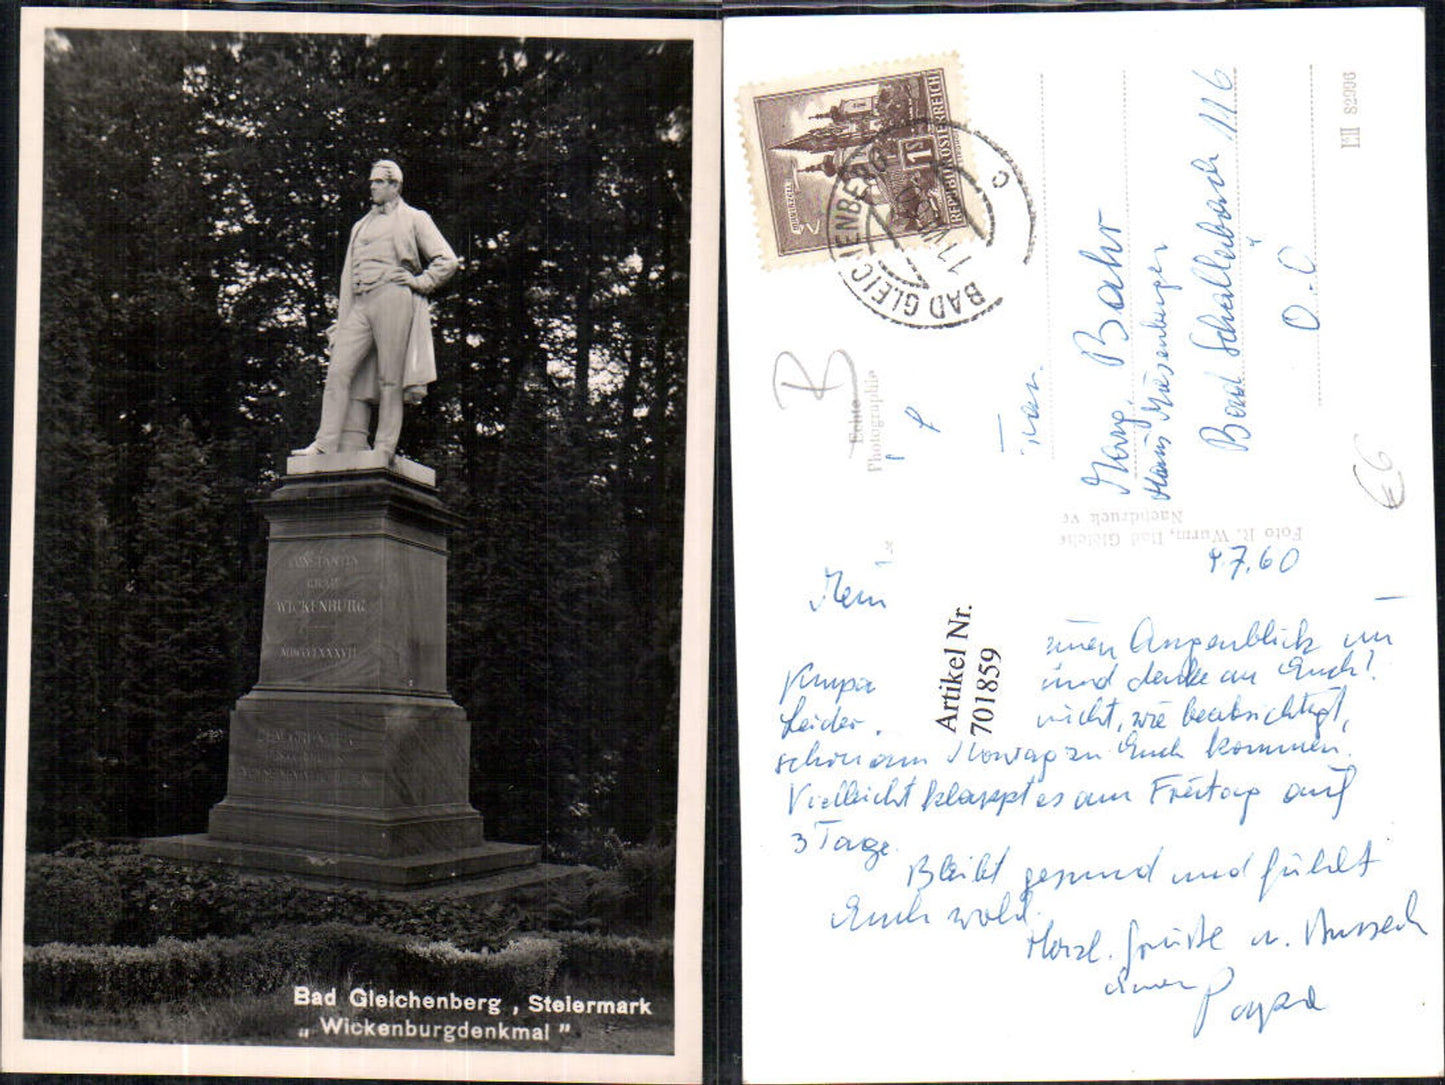 CONSTANTIN
GRAF
WICKENBURG
Bad Gleichenberg, Steiermark
„Wickenburgdenkmal"
REPUBLIK ÖSTERREICH
1
MARIAZELL
BAD GLEICHENBERG
Echte
Photographie
Bahr
Haus
Bad Schallerbach 116
O.Ö.
82996
Foto R. Wurm, Bad Gleiche
Nachdruck ve
€6
9.7.60
Artikel Nr.
701859
Augenblick
und denke an Euch!
Leider. nicht, wie beabsichtigt,
schon am Montag zu Euch kommen.
Vielleicht klappt es am Freitag auf
3 Tage.
Bleibt gesund und fühlt
Euch wohl.
Herzl. Grüße u. Busserl
Euer
Papa